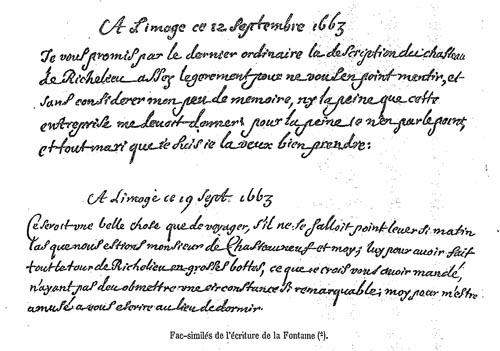 A Limoge ce 12 Septembre 1663
Je vous promis par le dernier ordinaire la description du chasteau
de Richelieu assez legerement pour ne vous en point mentir, et
sans considerer mon peu de memoire, ny la peine que cette
entreprise me devoit donner: pour la peine je n'en parle point,
et tout mari que je suis je la veux bien prendre:
A Limoge ce 19 Sept. 1663
Ce seroit vne belle chose que de voyager, s'il ne se falloit point leuer si matin
las que nous estions monsieur de Chasteauneuf et moy; luy pour auoir fait
tout le tour de Richelieu en grosses bottes, ce que je crois vous auoir mandé,
n'ayant pas deu obmettre vne circonstance si remarquable; moy pour m'estre
amusé a vous escrire au lieu de dormir.
Fac-similés de l'écriture de la Fontaine (²).